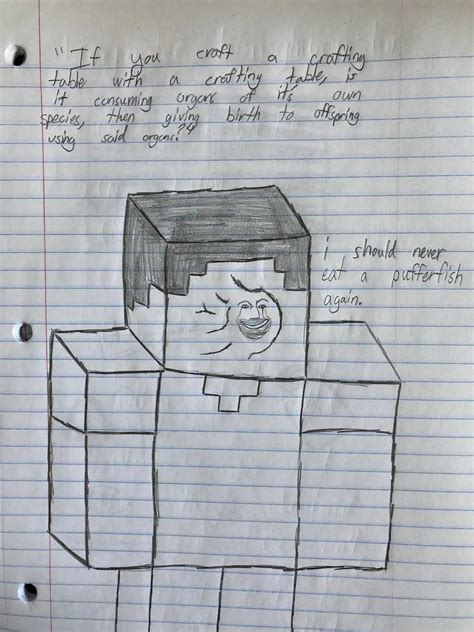 "If you craft a crafting
table with a crafting table, is
it consuming organs of it's own
species, then giving birth to offspring
using said organs?"
i should never
eat a pufferfish
again.